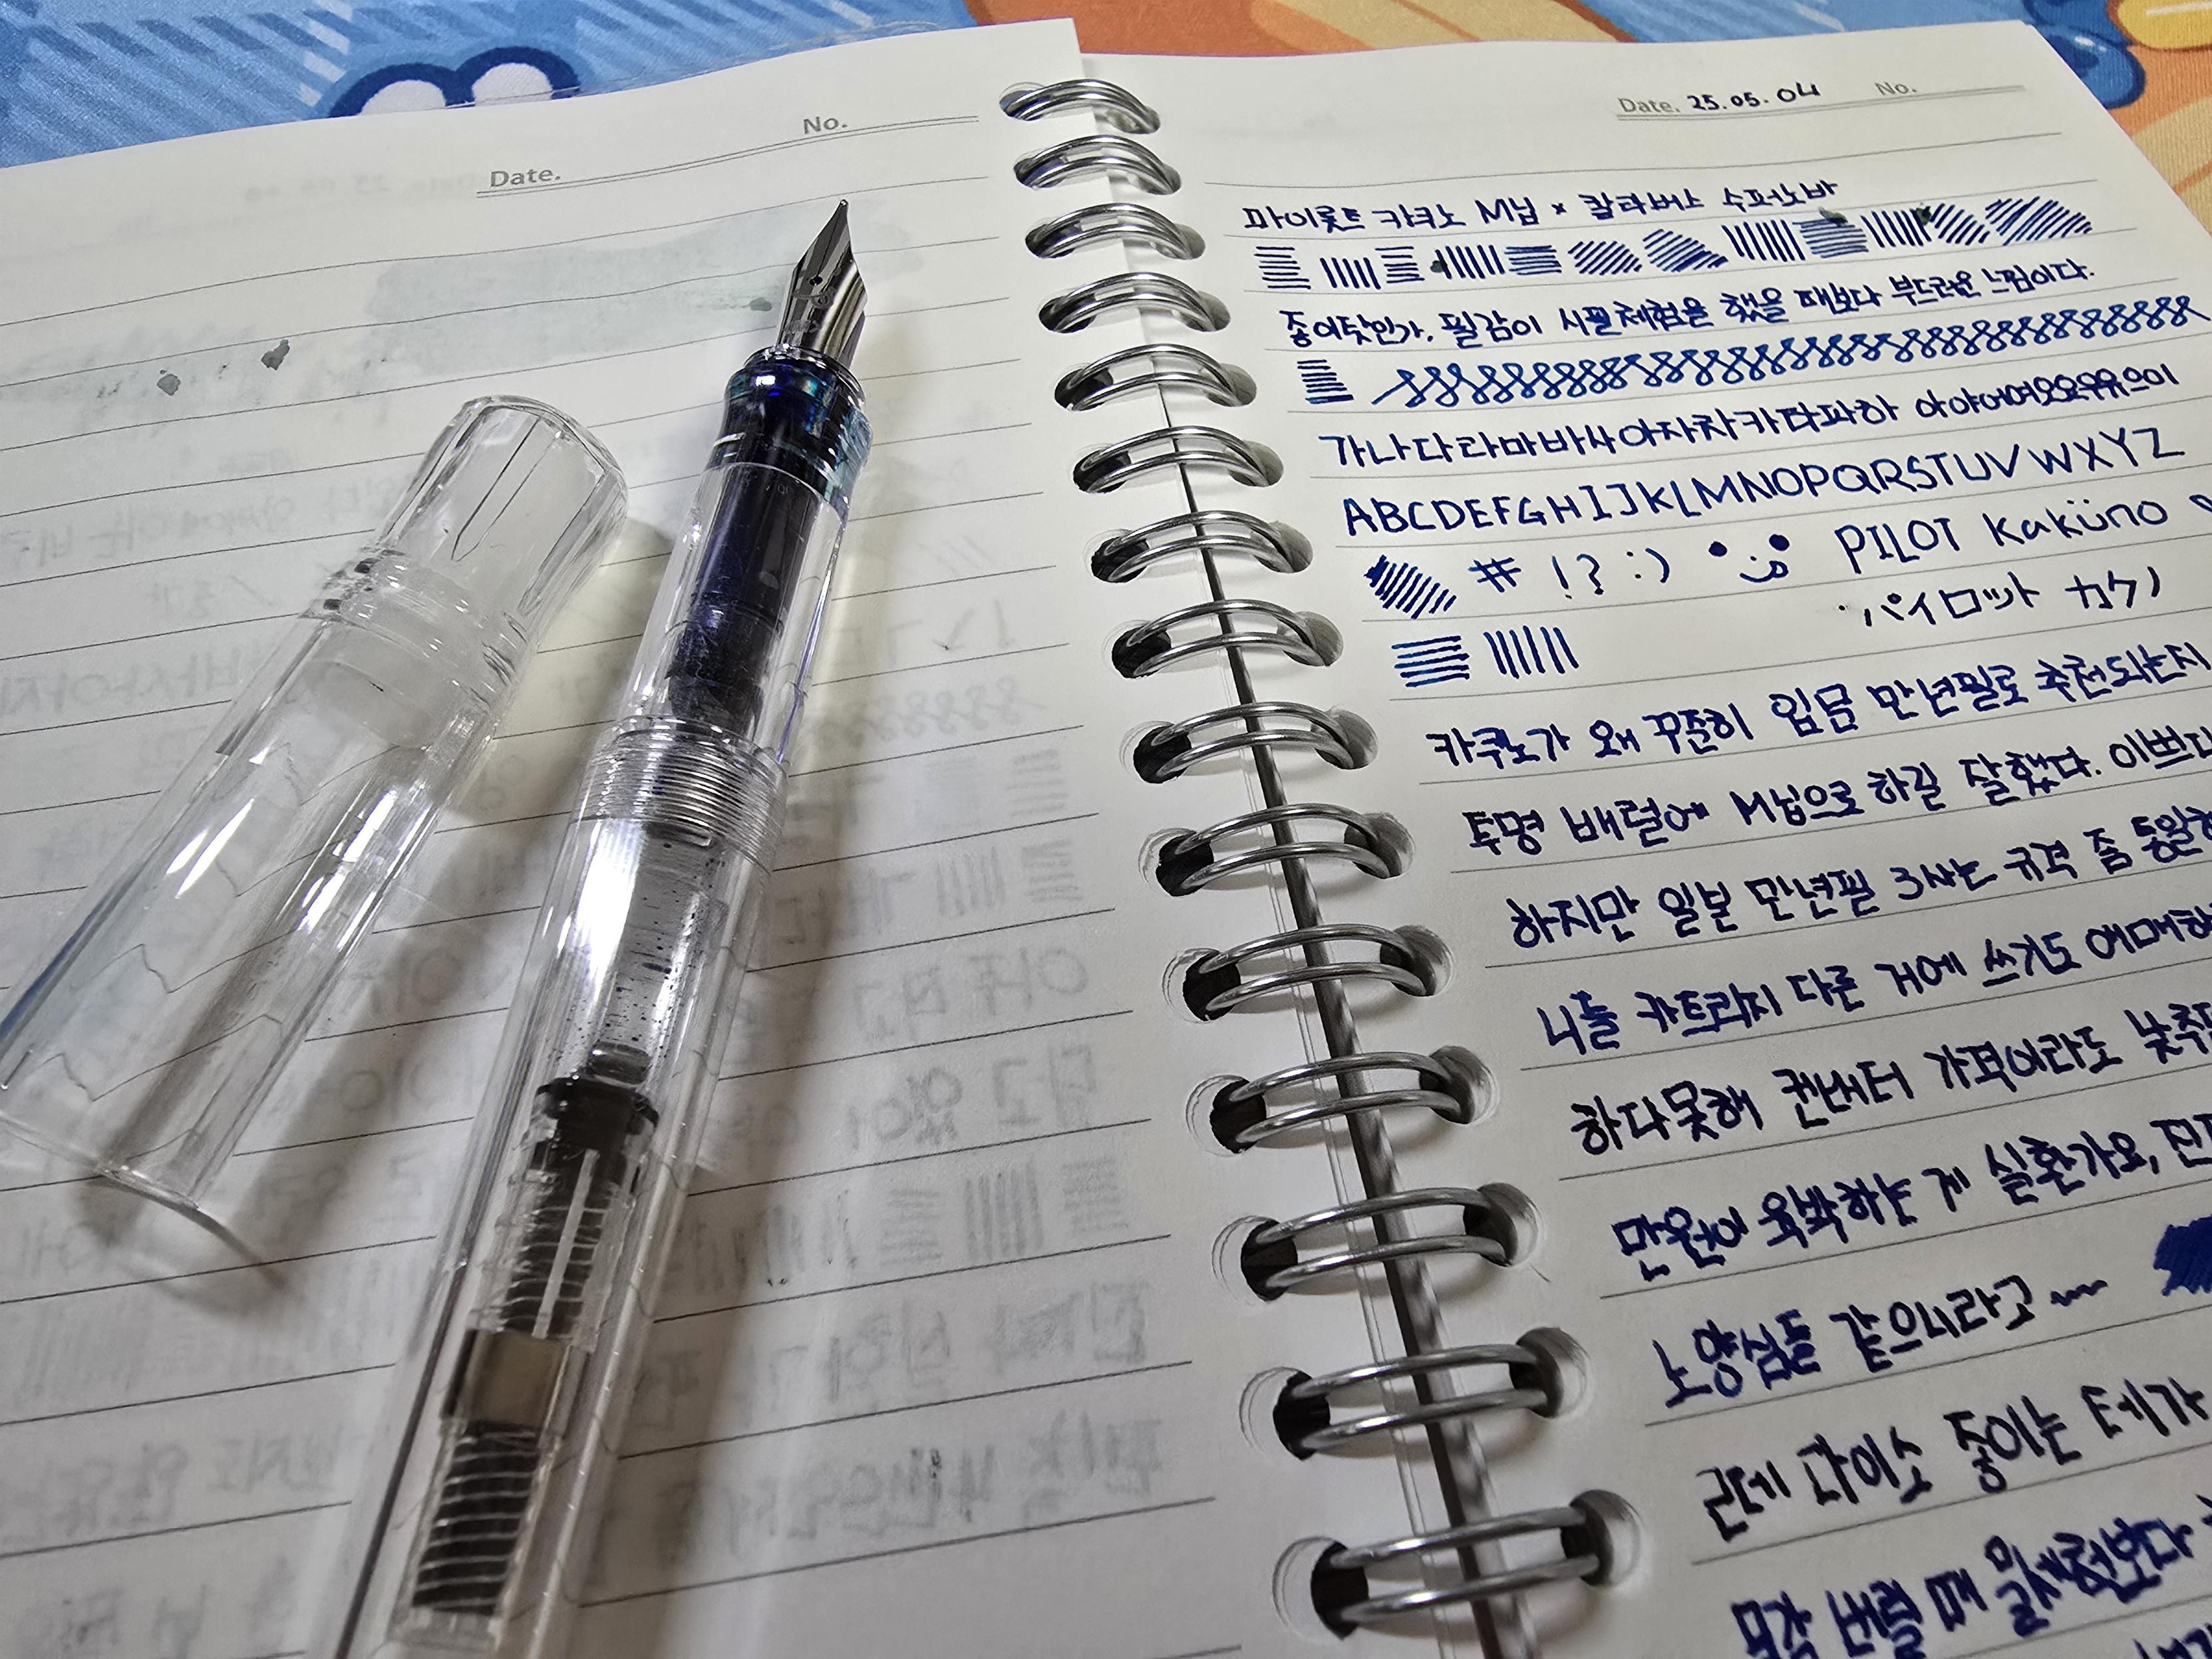 No.
Date.
Date. 25.05.04 No.
파이롯트 카쿠노 M닙 × 칼라버스 수퍼노바
종이탓인가. 필감이 시필체험을 했을 때보다 부드러운 느낌이다.
가나다라마바사아자차카타파하 아야어여오요우유으이
ABCDEFGHIJKLMNOPQRSTUVWXYZ
# !? :) PILOT Kaküno
パイロット カクノ
카쿠노가 왜 꾸준히 입문 만년필로 추천되는지
투명 배럴에 M닙으로 하길 잘했다. 이쁘다
하지만 일본 만년필 3사는 규격 좀 통일
니들 카트리지 다른 거에 쓰기도 애매하
하다못해 컨버터 가격이라도 낮추
만원이 육박하는 게 실환가요,
노양심들 같으니라고~
근데 다이소 종이는 테가
번질 때